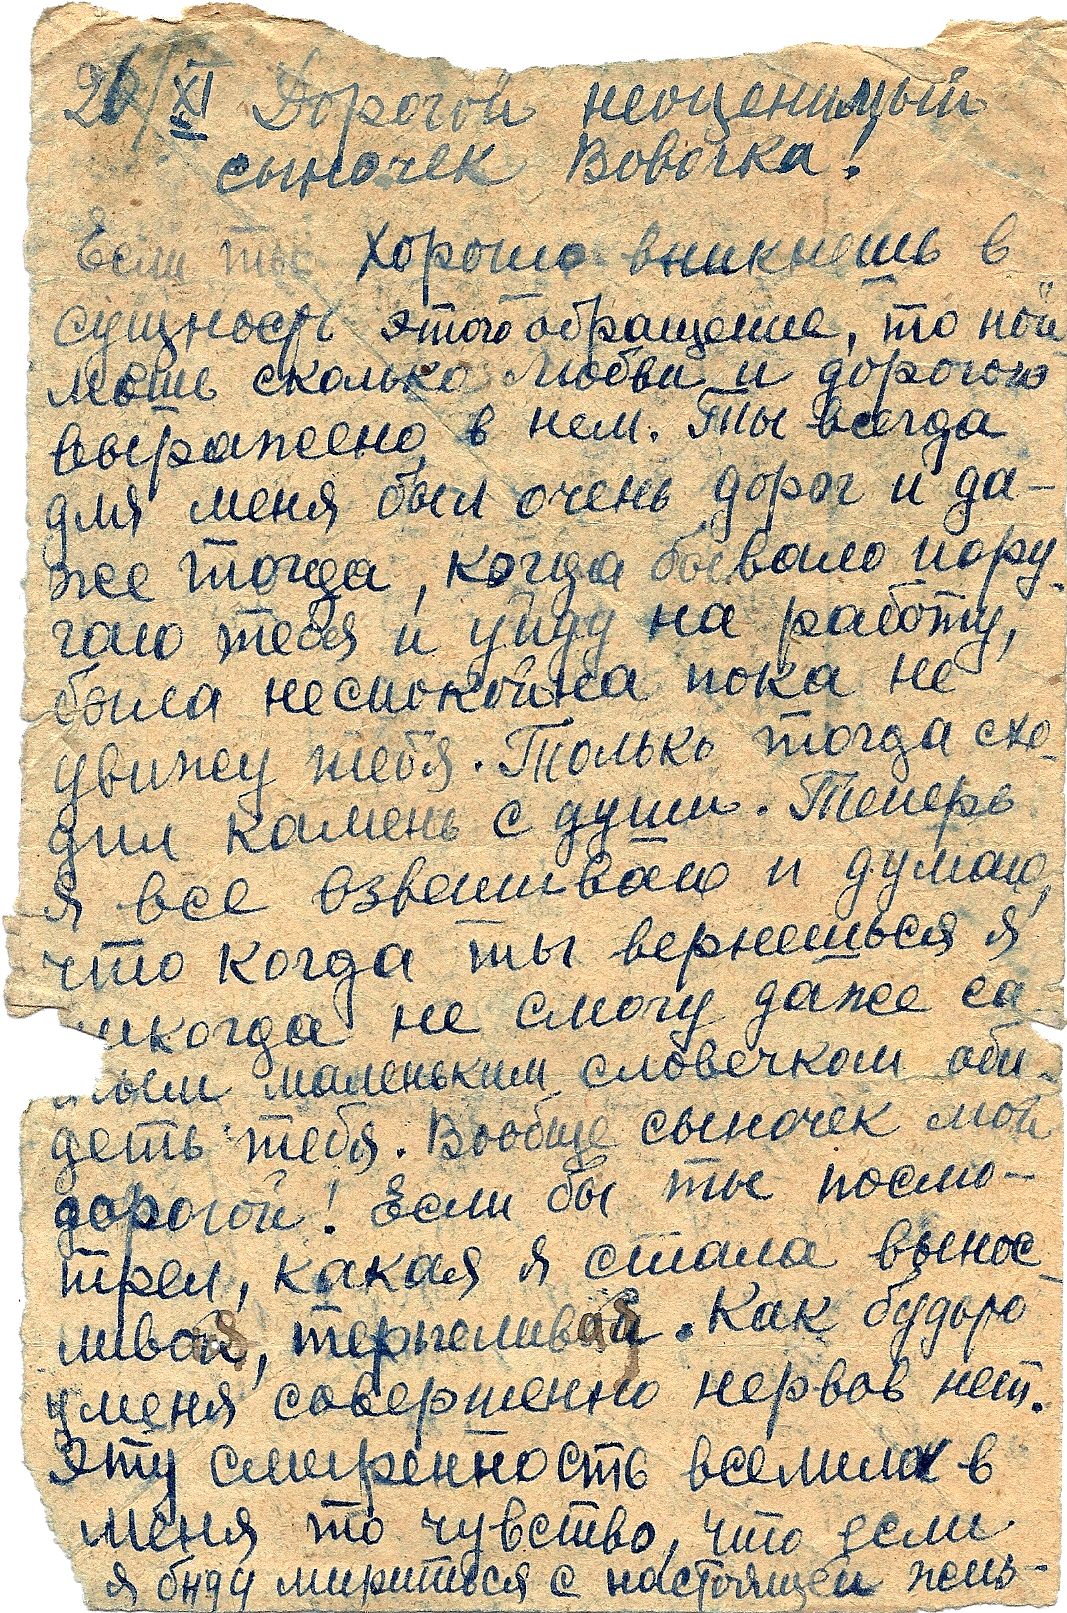 26/XI Дорогой неоценимый
сыночек Вовочка!
Если ты хорошо вникнешь в
сущность этого обращения, то пой
мешь сколько любви и дорогого
выражено в нем. Ты всегда
для меня был очень дорог и да-
же тогда, когда бывало пору-
гаю тебя и уйду на работу,
была неспокойна пока не
увижу тебя. Только тогда схо-
дил камень с души. Теперь
я все взвешиваю и думаю,
что когда ты вернешься я
никогда не смогу даже са
мым маленьким словечком оби-
деть тебя. Вообще сыночек мой
дорогой! Если бы ты посмо-
трел, какая я стала вынос-
ливая, терпеливая. Как будьто
у меня совершенно нервов нет.
Эту смиренность вселила в
меня то чувство, что если
я буду мириться с настоящей жень-